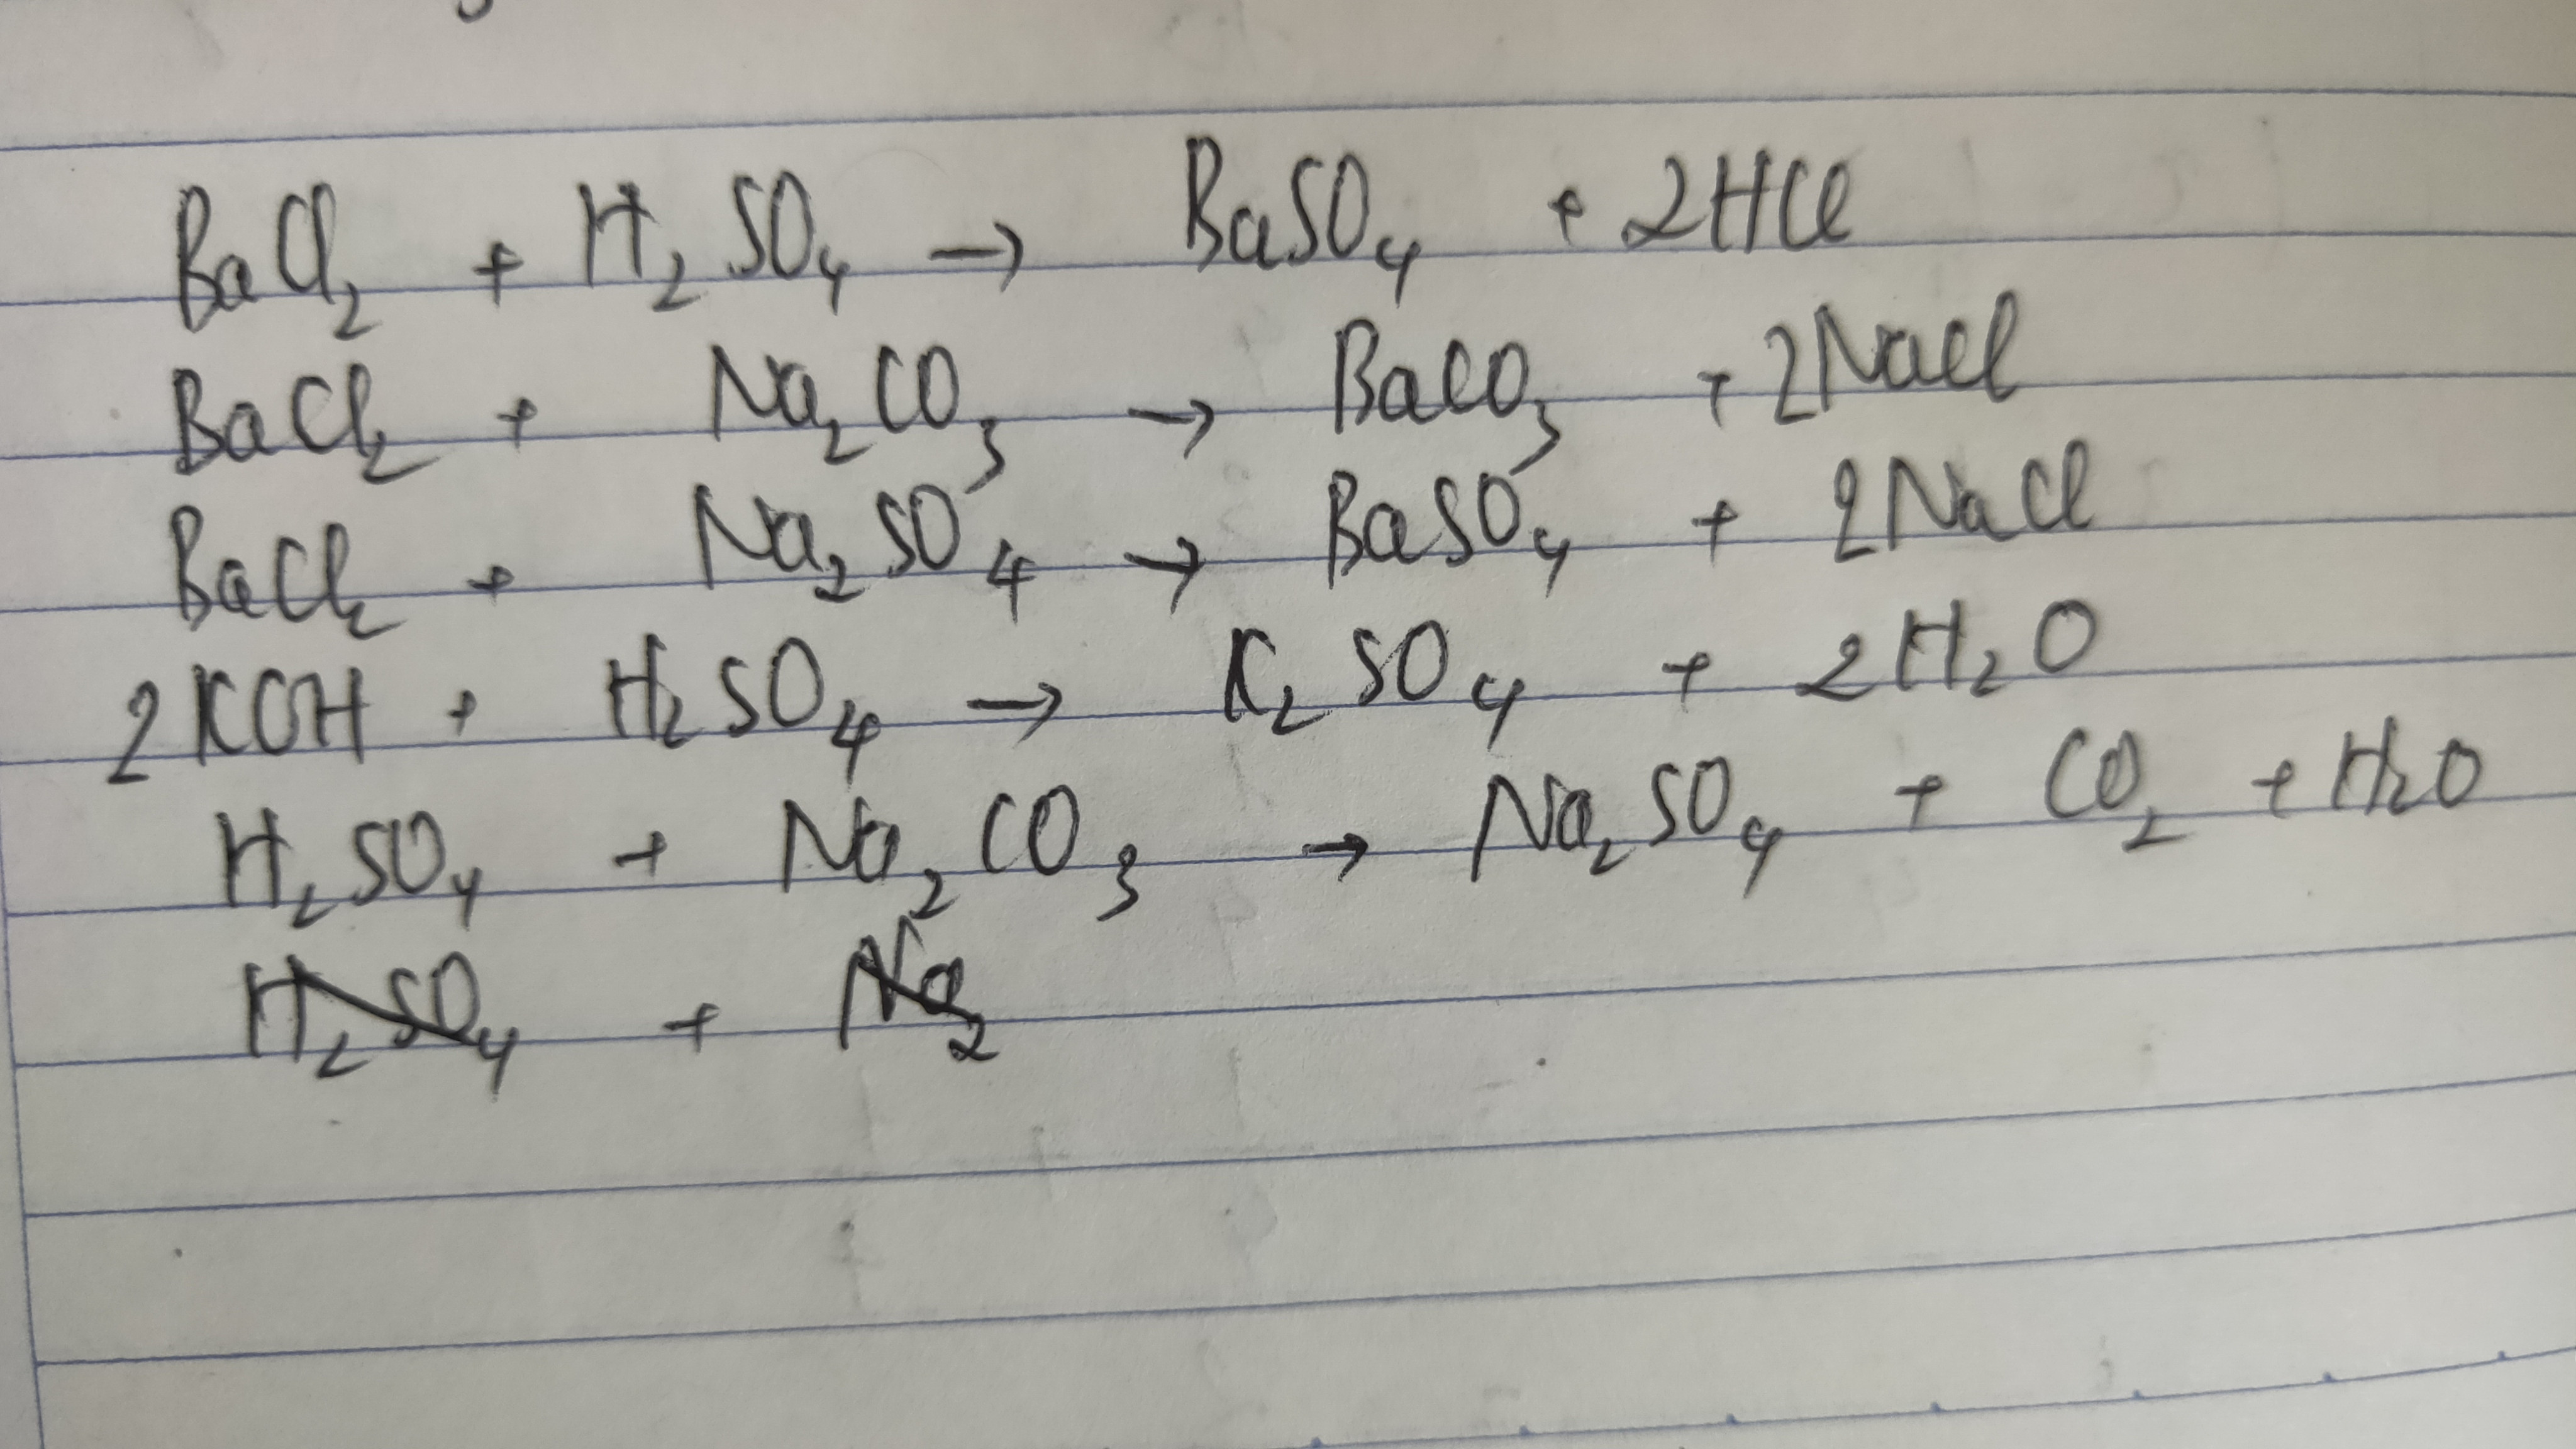 BaCl₂ + H₂SO₄ → BaSO₄ + 2HCl
BaCl₂ + Na₂CO₃ → BaCO₃ + 2NaCl
BaCl₂ + Na₂SO₄ → BaSO₄ + 2NaCl
2KOH + H₂SO₄ → K₂SO₄ + 2H₂O
H₂SO₄ + Na₂CO₃ → Na₂SO₄ + CO₂ + H₂O
H₂SO₄ + Na₂